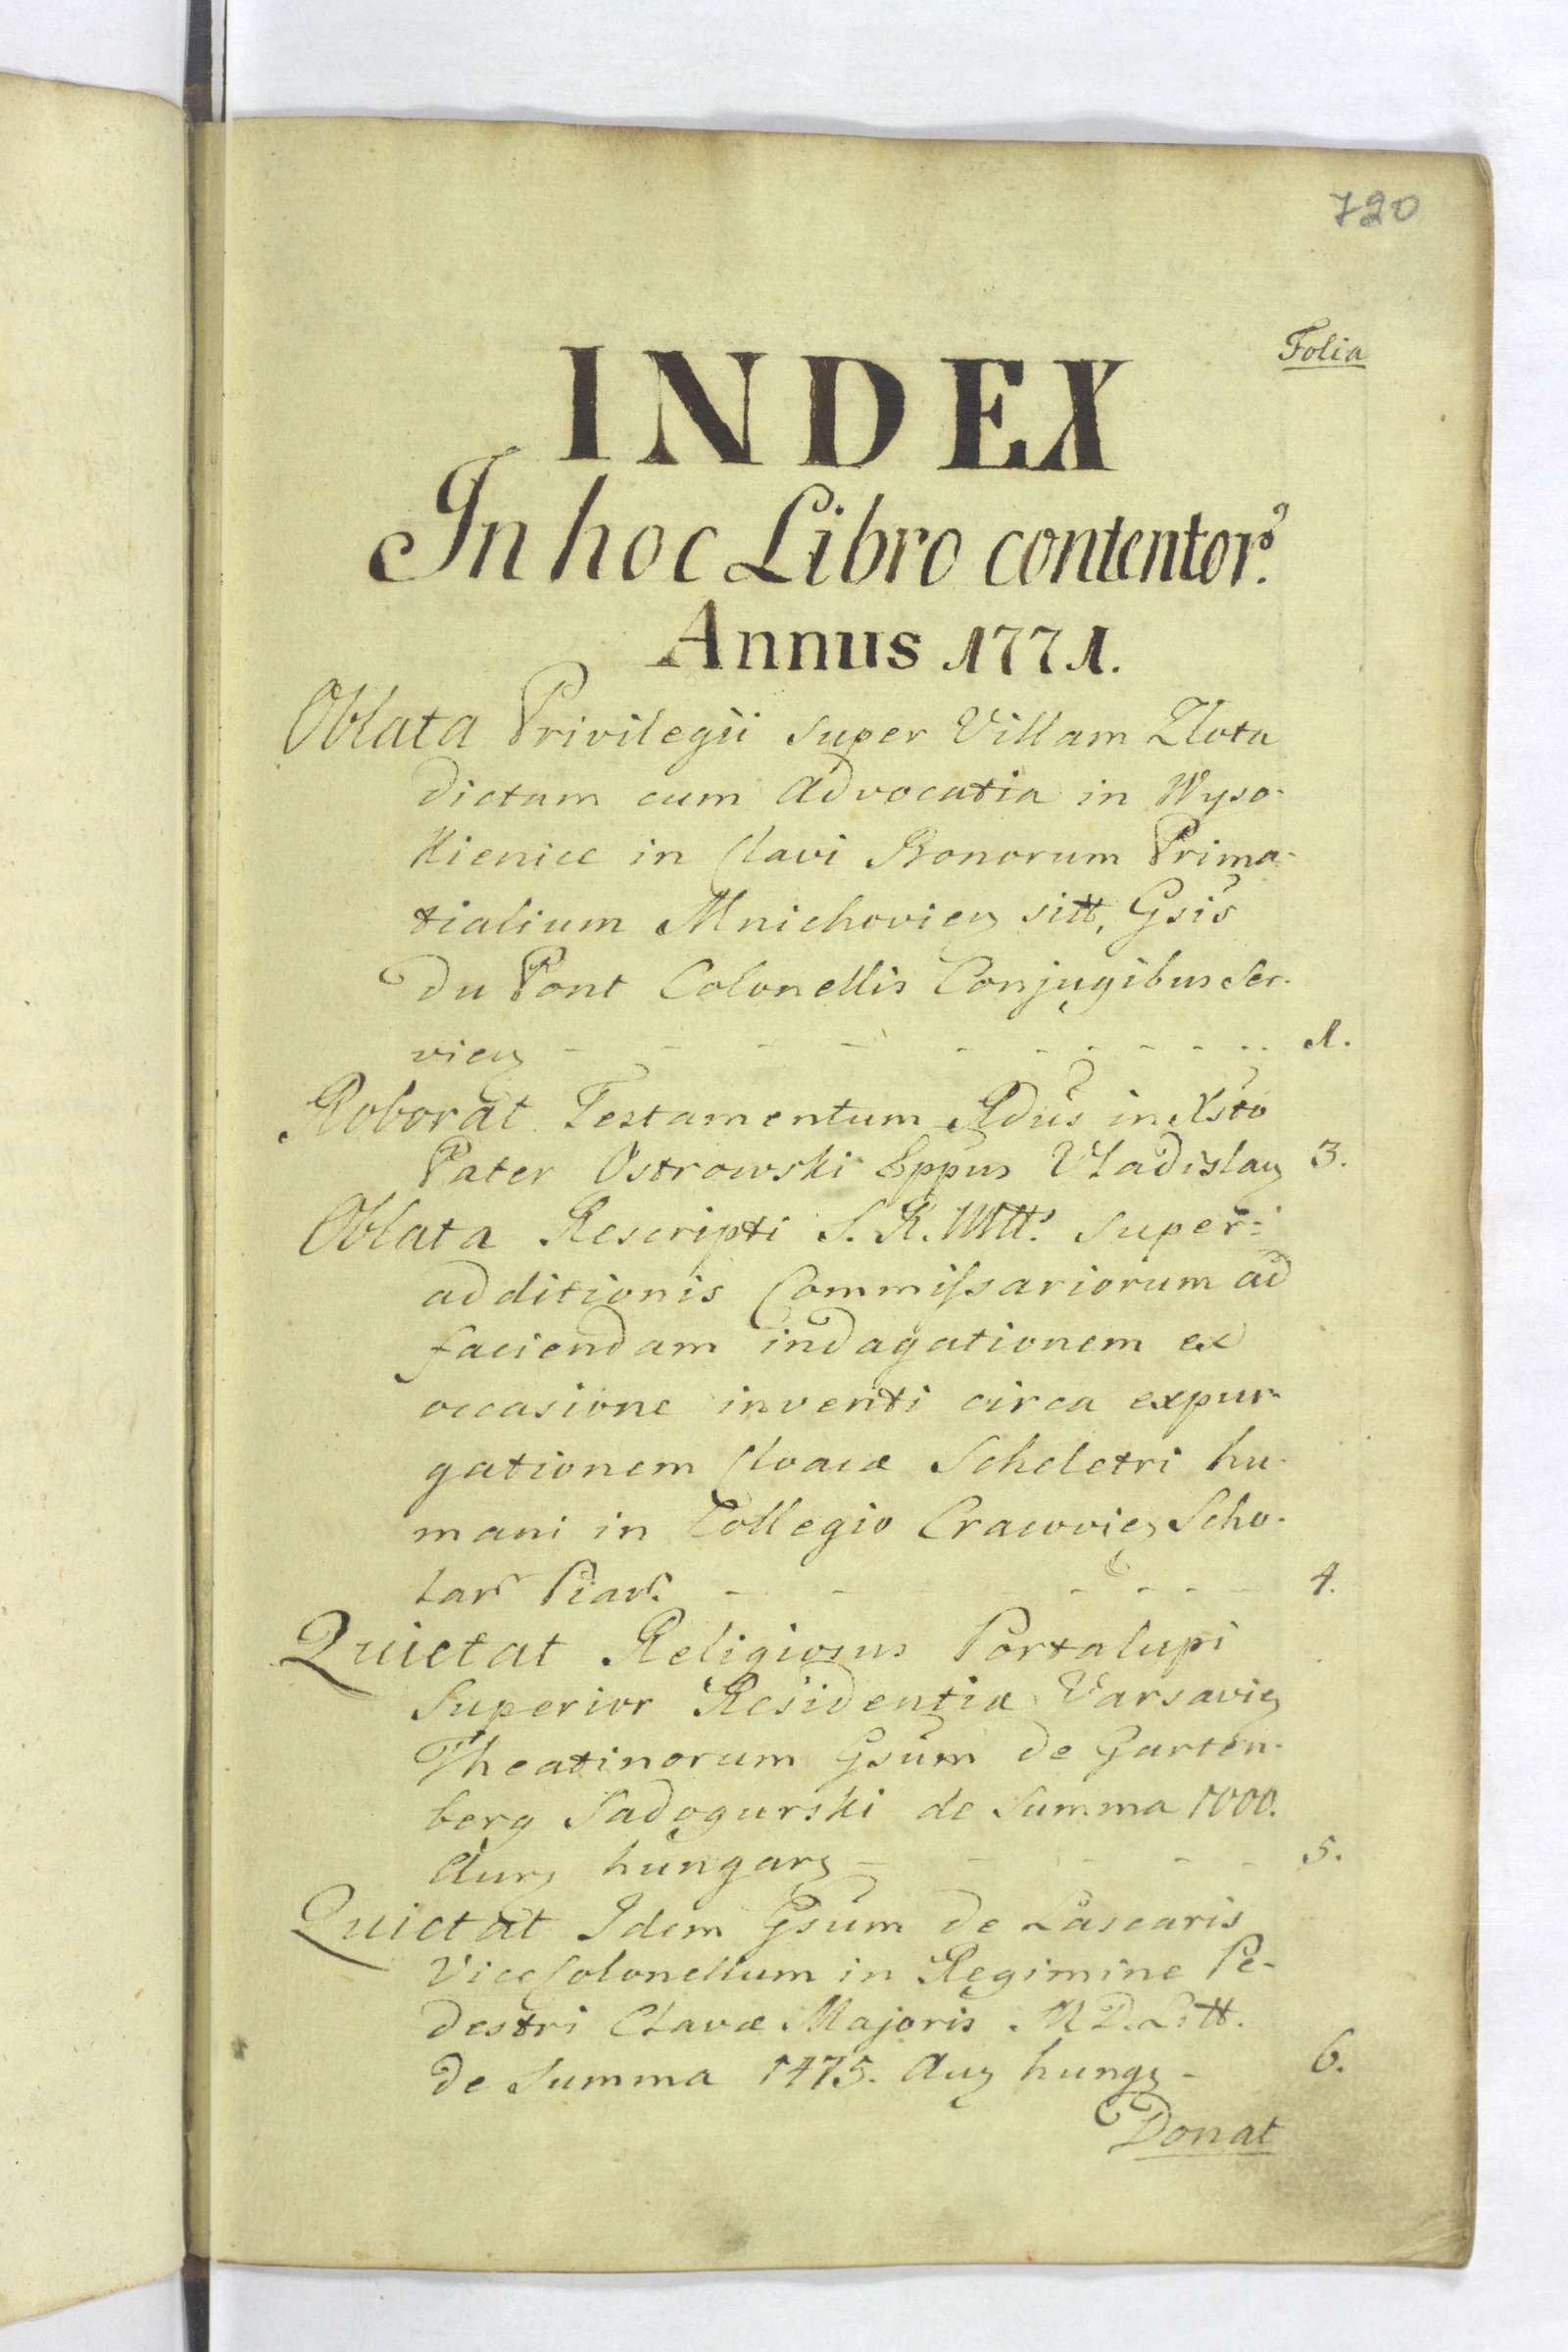 720
Folia
INDEX
In hoc Libro contentor.
Annus 1771.
Oblata Privilegii super Villam Zlota
dictam cum Advocatia in Wyso-
kienice in Clavi Bonorum Prima-
tialium Mnichovien sitt, Gsis
Du Pont Colonellis Conjugibus ser-
vien - - - - - - - - - - 1.
Roborat Testamentum Rdus in Xsto
Pater Ostrowski Eppus Vladislav 3.
Oblata Rescripti S. R. Mtt. super-
additionis Commissariorum ad
faciendam indagationem ex
occasione inventi circa expur-
gationem Cloacæ Scheletri hu-
mani in Collegio Cracovien Scho-
lar Piar. - - - - - - 4.
Quietat Religiosus Portalupi
Superior Residentiæ Varsavien
Theatinorum Gsum de Garten-
berg Sadogurski de Summa 1000.
Aur hungar - - - - - 5.
Quietat Idem Gsum de Lascaris
ViceColonellum in Regimine Pe-
destri Clavæ Majoris M. D. Litt.
de Summa 1475. Au hung - 6.
Donat